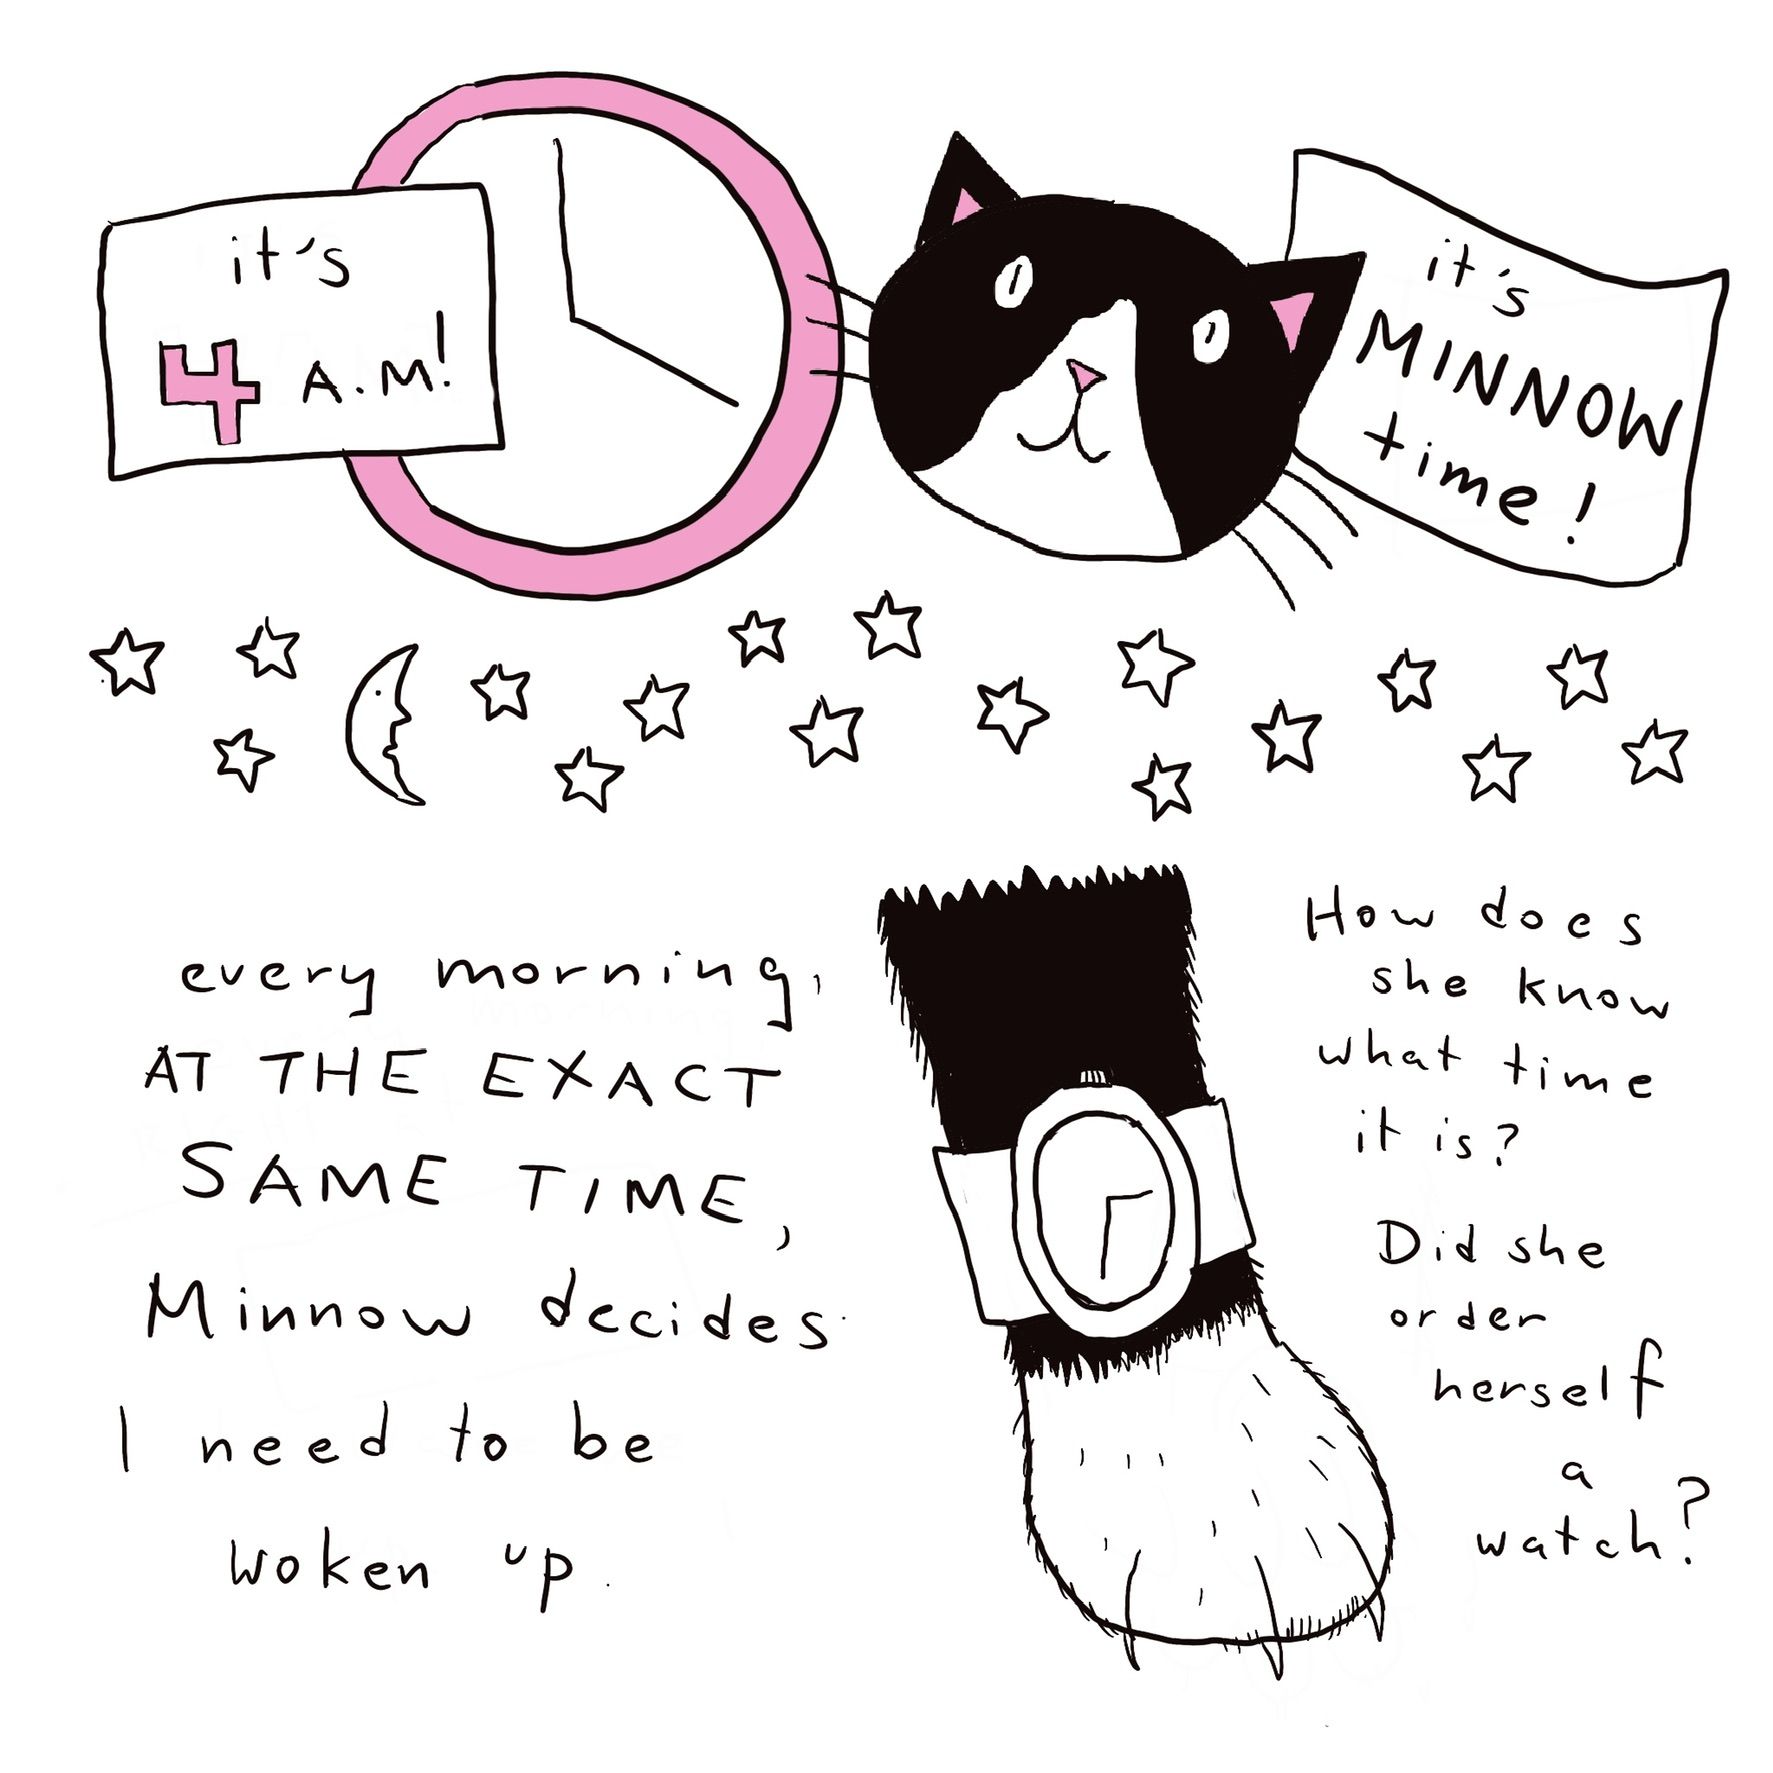 it's
4 A.M!
it's
MINNOW
time!
every morning,
AT THE EXACT
SAME TIME,
Minnow decides
I need to be
woken up.
How does
she know
what time
it is?
Did she
order
herself
a
watch?